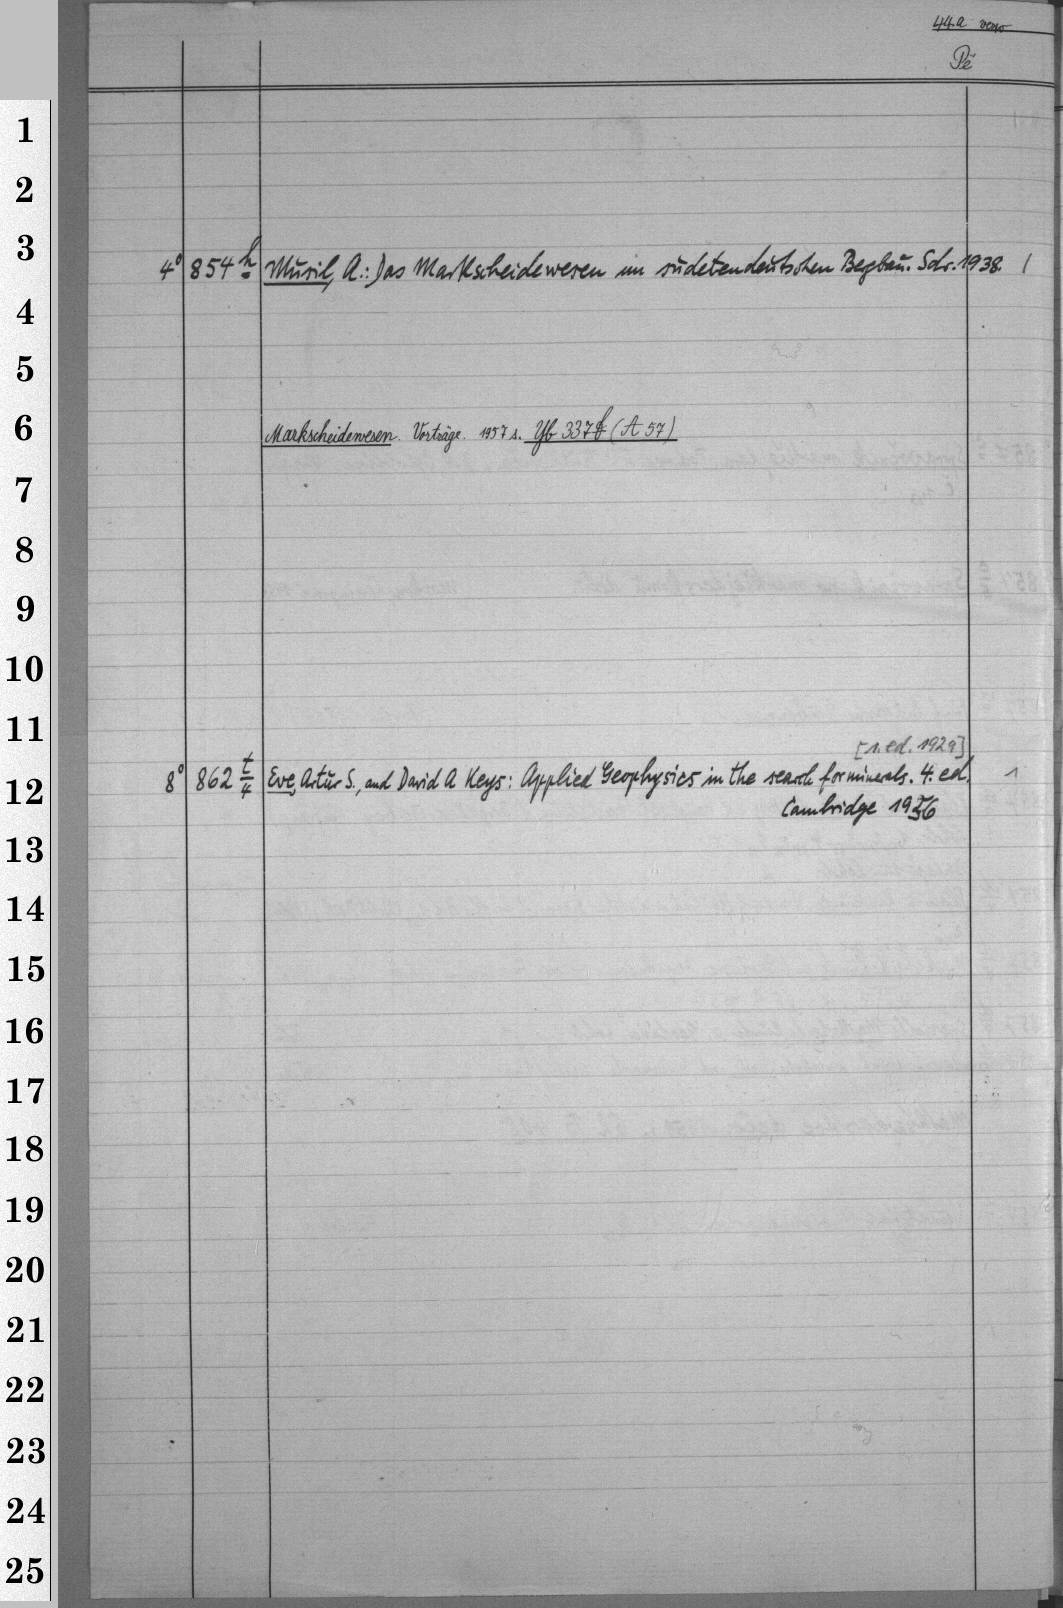 44a verso
Pě
1
2
3
4° 854 h Musil, A.: Das Markscheidewesen im sudetendeutschen Bergbau. Sdr. 1938. 1
4
5
6
Markscheidewesen. Vorträge. 1957 s. Yb 337 f (A 57)
7
8
9
10
11
[1. ed. 1929]
8° 862 t/4 Eve, Artur S., and David A Keys: Applied Geophysics in the search for minerals. 4. ed. 1
12
Cambridge 1956
13
14
15
16
17
18
19
20
21
22
23
24
25